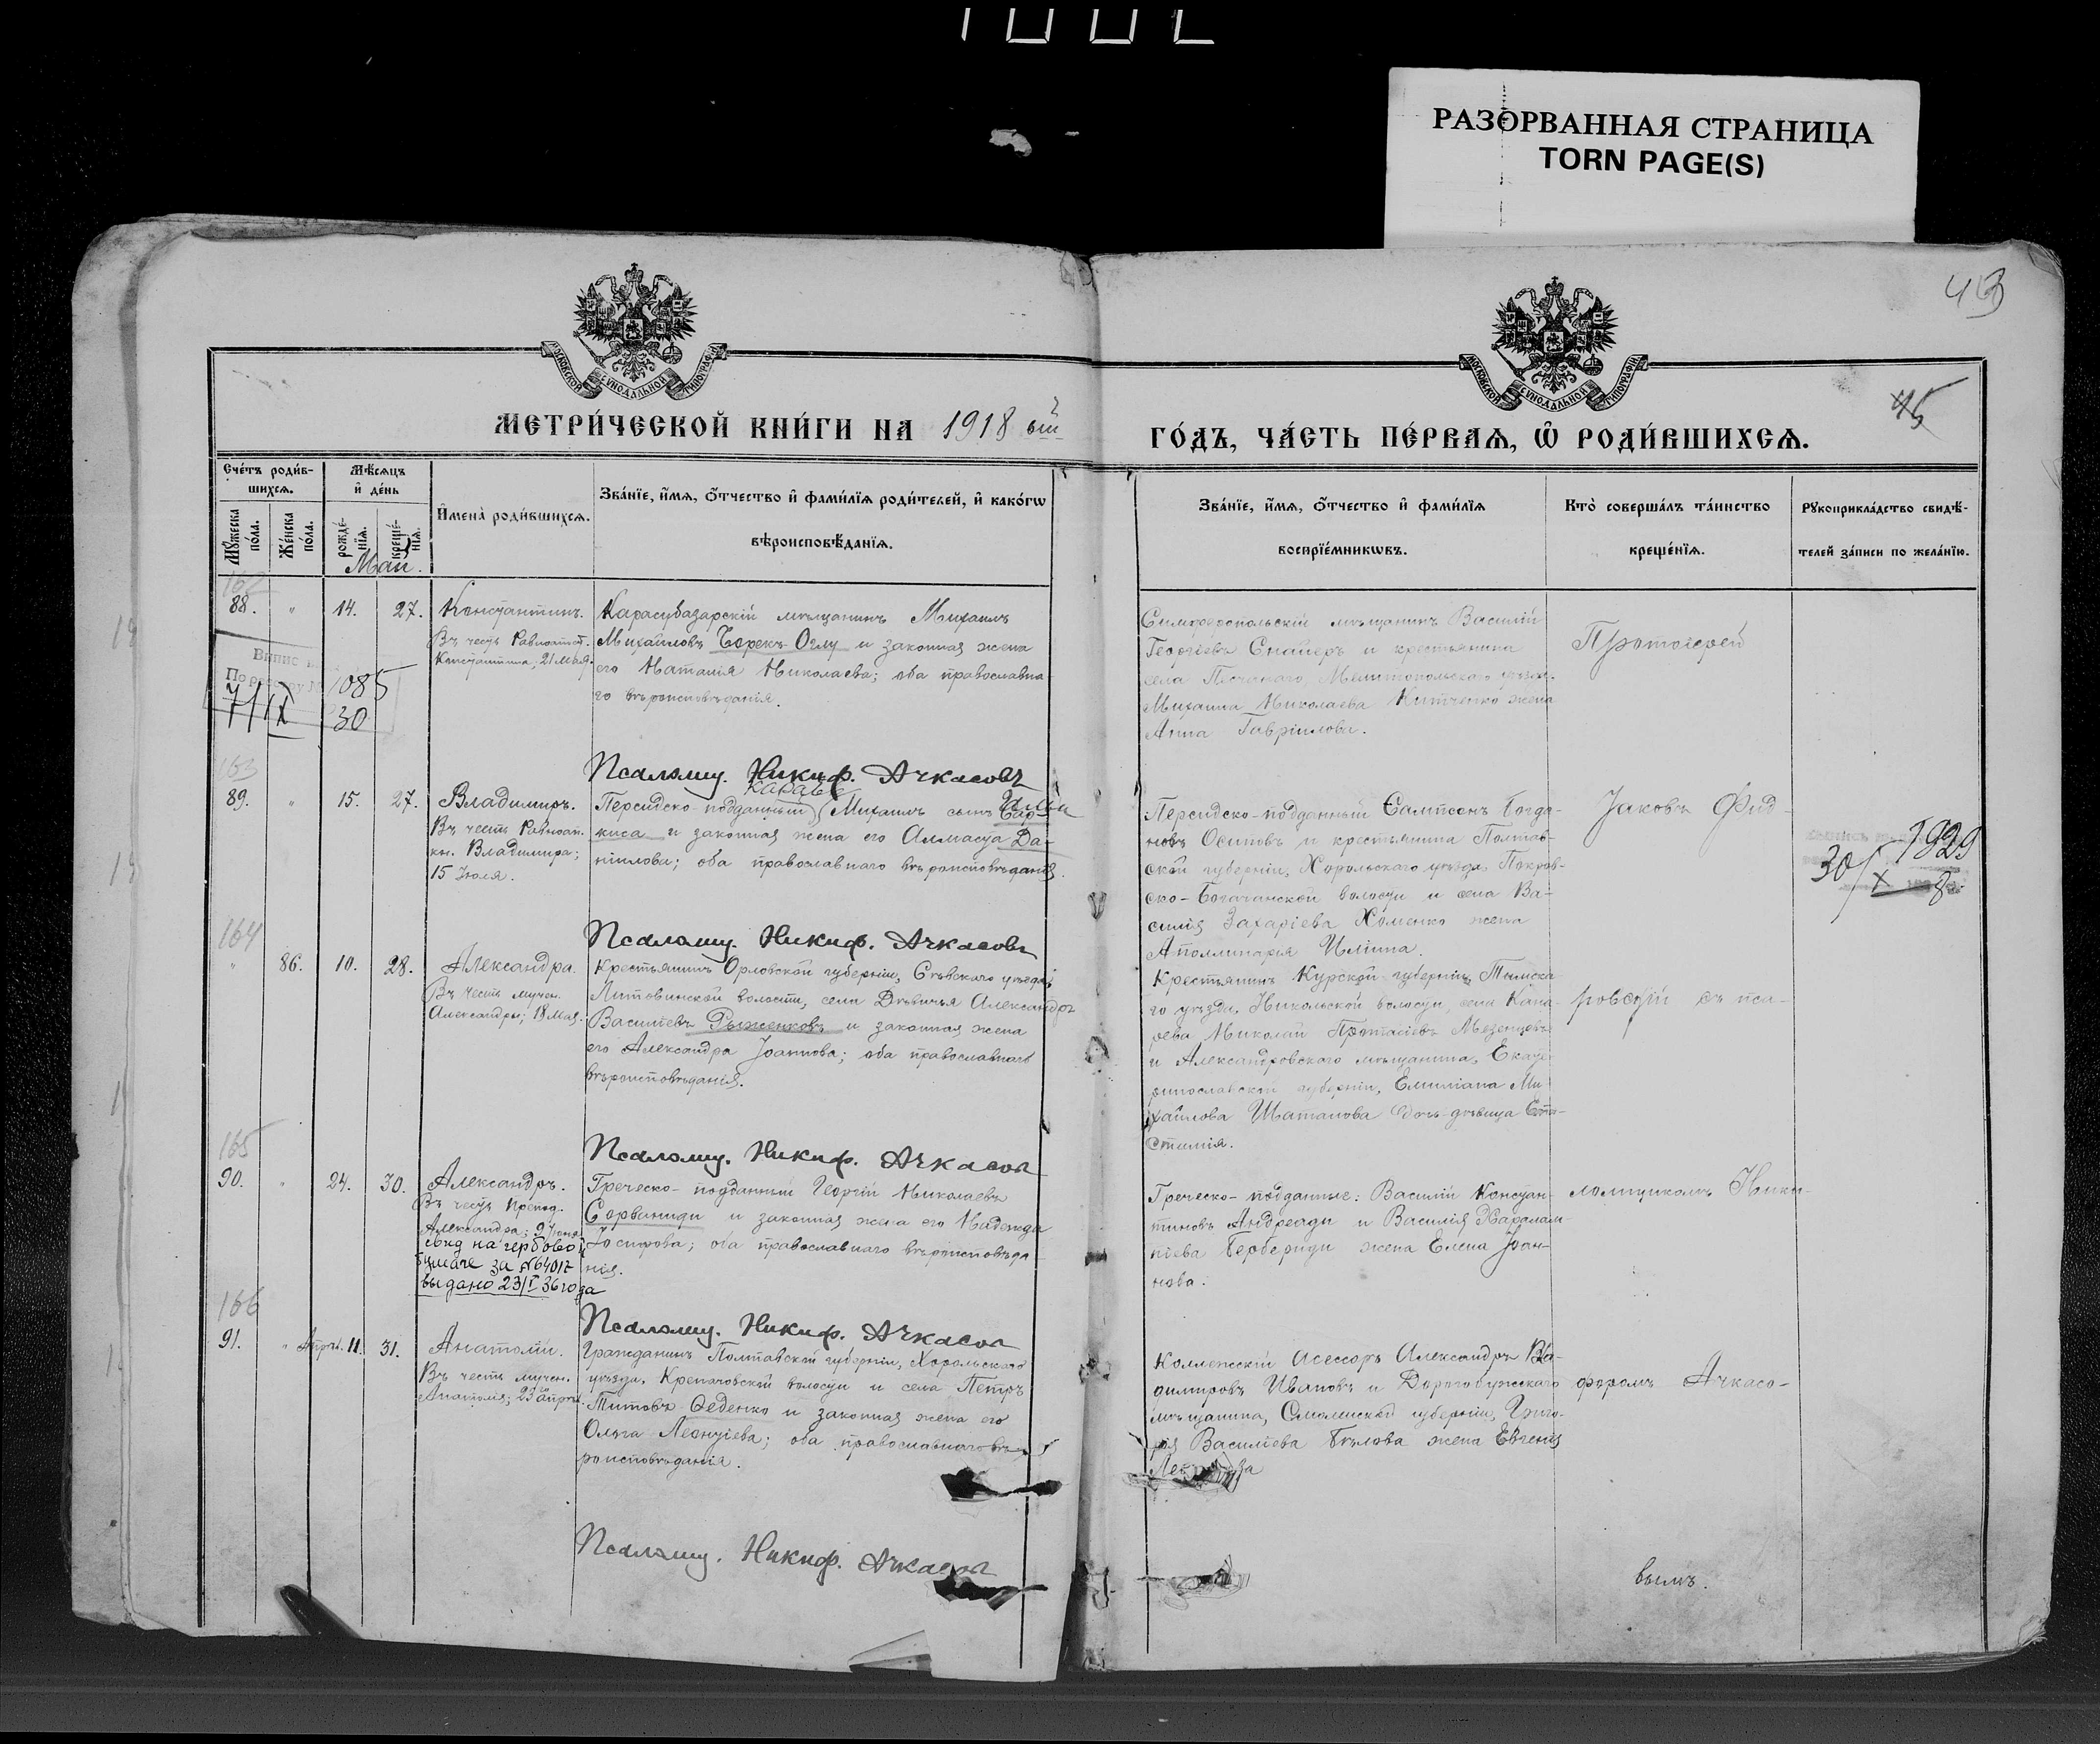 РАЗОРВАННАЯ СТРАНИЦА
TORN PAGE(S)
43
45
МОСКОВСКОЙ СУНОДАЛЬНОЙ ТИПОГРАФІИ
МОСКОВСКОЙ СУНОДАЛЬНОЙ ТИПОГРАФІИ
МЕТРИ́ЧЕСКОЙ КНИ́ГИ НА 1918 ый
ГО́ДЪ, ЧА́СТЬ ПЕ́РВАѦ, Ѡ҆ РОДИ́ВШИХСѦ.
Сче́тъ роди́в-
шихсѧ.
Мѣ́сѧцъ
и҆ де́нь
Мꙋ́жеска по́ла.
Же́нска по́ла.
рожде́-
нїѧ.
креще́-
нїѧ.
Май.
И҆мена̀ роди́вшихсѧ.
Зва́нїе, и҆́мѧ, ѻ҆́тчество и҆ фами́лїѧ роди́телей, и҆ како́гѡ
вѣроисповѣ́данїѧ.
Зва́нїе, и҆́мѧ, ѻ҆́тчество и҆ фами́лїѧ
воспрїе́мникѡвъ.
Кто̀ соверша́лъ та́инство
креще́нїѧ.
Рꙋкоприкла́дство свидѣ́-
телей за́писи по жела́нїю.
162
88. " 14. 27. Константинъ.
Въ честь Равноапост.
Константина, 21 Мая.
1085
7/IX 30
Карасубазарскій мѣщанинъ Михаилъ
Михайловъ Борекъ Оглу и законная жена
его Наталія Николаева; оба православна-
го вѣроисповѣданія.
Псаломщ. Никиф. Ачкасовъ
Симферопольскій мѣщанинъ Василій
Георгіевъ Снайеръ и крестьянина
села Песчанаго, Мелитопольскаго уѣзда
Михаила Николаева Китченко жена
Анна Гавріилова.
Протоіерей
163
89. " 15. 27. Владимиръ.
Въ честь Равноап.
кн. Владимира;
15 Іюля.
Персидско-подданный Михаилъ сынъ Сар-
киса и законная жена его Алмаста Да-
ніилова; оба православнаго вѣроисповѣданія.
Псаломщ. Никиф. Ачкасовъ
Персидско-подданный Сампсонъ Богда-
новъ Осиповъ и крестьянина Полтав-
ской губерніи, Хорольскаго уѣзда, Покров-
ско-Богачанской волости и села Ва-
силія Захаріева Хоменко жена
Аполлинарія Иліина.
Іаковъ Фид-
1929
30/X 8.
164
" 86. 10. 28. Александра.
Въ честь мучен.
Александры; 18 Мая.
Крестьянинъ Орловской губерніи, Сѣвскаго уѣзда,
Литовинской волости, села Дѣвичья Александръ
Василіевъ Рыженковъ и законная жена
его Александра Іоаннова; оба православнаго
вѣроисповѣданія.
Псаломщ. Никиф. Ачкасовъ
Крестьянинъ Курской губерніи, Тимска-
го уѣзда, Никольской волости, села
Николай Протасіевъ Мезенцевъ
и Александровскаго мѣщанина, Екате-
ринославской губерніи, Емиліана Ми-
хайлова Шатанова дочь-дѣвица
ровскій съ пса-
165
90. " 24. 30. Александръ.
Въ честь Препод.
Александра; 9 Іюня
свид на гербовой
бумаге за №64017
выдано 23/I 36 года
Греческо-подданный Георгій Николаевъ
Сорваниди и законная жена его Надежда
Іосифова; оба православнаго вѣроисповѣда
нія.
Псаломщ. Никиф. Ачкасовъ
Греческо-подданные: Василій Констан-
тиновъ Андреади и Василія Харалам-
піева Бербериди жена Елена Іоан-
нова.
ломщикомъ Ники-
166
91. " Апрѣл. 11. 31. Анатолій.
Въ честь мучен.
Анатолія; 23 апрѣля.
Гражданинъ Полтавской губерніи, Хорольскаго
уѣзда, Кропачовской волости и села Петръ
Титовъ Феденко и законная жена его
Ольга Леонтіева; оба православнаго вѣ-
роисповѣданія.
Псаломщ. Никиф. Ачкасовъ
Коллежскій Асессоръ Александръ Вла-
димировъ Ивановъ и Дорогобужскаго
мѣщанина, Смоленской губерніи, Григо-
рія Василіева Бѣлова жена Евгенія
форомъ Ачкасо-
вымъ.